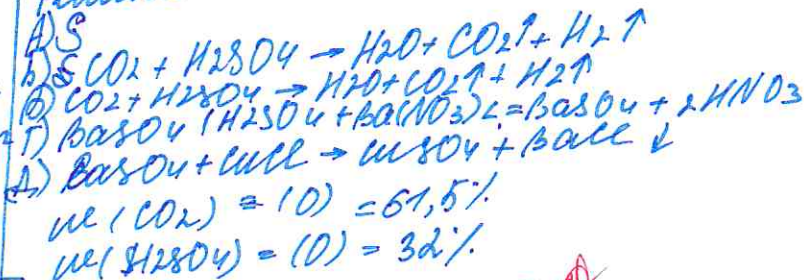 А) S
Б) CO2 + H2SO4 → H2O + CO2↑ + H2↑
В) CO2 + H2SO4 → H2O + CO2↑ + H2↑
Г) BaSO4 (H2SO4 + Ba(NO3)2 = BaSO4 + 2HNO3
Д) BaSO4 + CuCl → CuSO4 + BaCl ↓
m (CO2) = (O) = 61,5%.
m (H2SO4) = (O) = 32%.